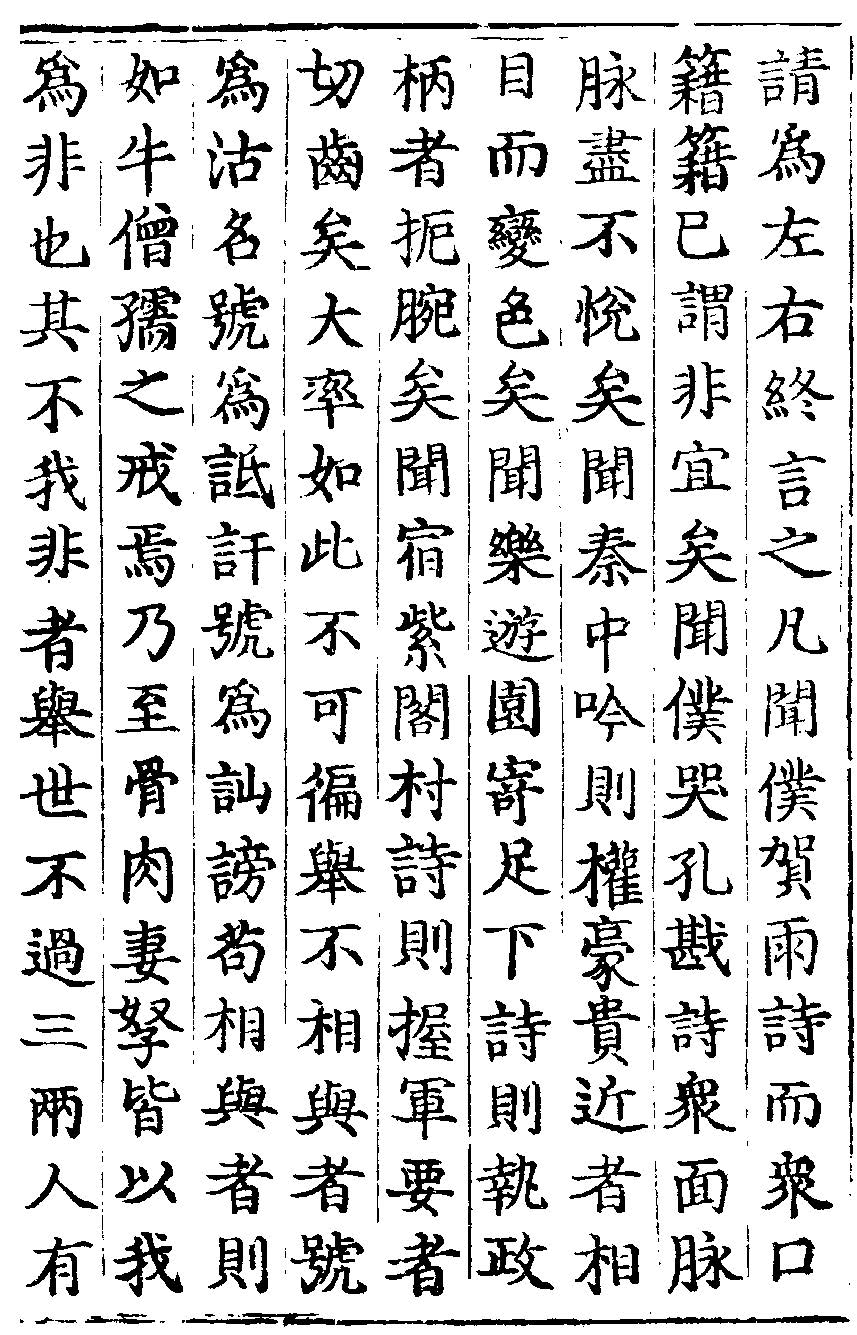 請爲左右終言之凡聞僕賀雨詩而衆口
籍籍已謂非宜矣聞僕哭孔戡詩衆面脉
脉盡不悅矣聞秦中吟則權豪貴近者相
目而變色矣聞樂遊園寄足下詩則執政
柄者扼腕矣聞宿紫閣村詩則握軍要者
切齒矣大率如此不可徧舉不相與者號
爲沽名號爲詆訐號爲訕謗苟相與者則
如牛僧孺之戒焉乃至骨肉妻孥皆以我
爲非也其不我非者舉世不過三兩人有